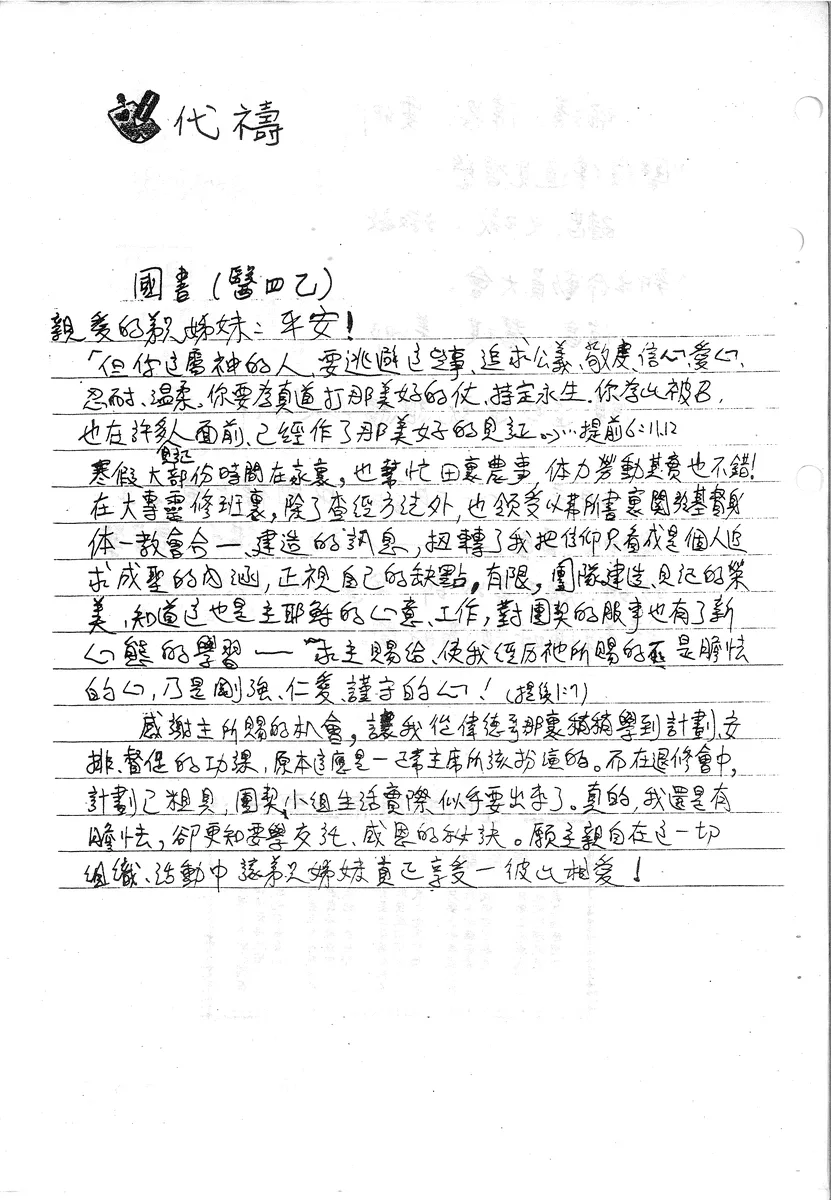 代禱
國書(醫四乙)
親愛的弟兄姊妹：平安！
「但你這屬神的人、要逃避這些事、追求公義、敬虔、信心、愛心、
忍耐、溫柔。你要為真道打那美好的仗、持定永生、你為此被召、
也在許多人面前、已經作了那美好的見証。」…提前6:11,12
寒假大部份時間在家裏，也幫忙田裏農事，體力勞動其實也不錯！
在大專靈修班裏，除了查經方法外，也領受以弗所書裏關於基督身
体—教會合一、建造的訊息，扭轉了我把信仰只看成是個人追
求成聖的內涵，正視自己的缺點，有限，團隊建造、見記的榮
美，知道這也是主耶穌的心意、工作，對團契的服事也有了新
心態的學習——求主賜給、使我經历祂所賜的不是膽怯
的心，乃是剛強、仁愛、謹守的心！(提後1:7)
感謝主所賜的机會，讓我從偉德哥那裏稍稍學到計劃、安
排、督促的功課，原本這應是一正常主席所該扮演的。而在退修會中，
計劃已粗具，團契、小組生活實際似乎要出來了。真的，我還是有
膽怯，卻更知要學交託、感恩的秘訣。願主親自在這一切
組織、活動中讓弟兄姊妹真正享受—彼此相愛！